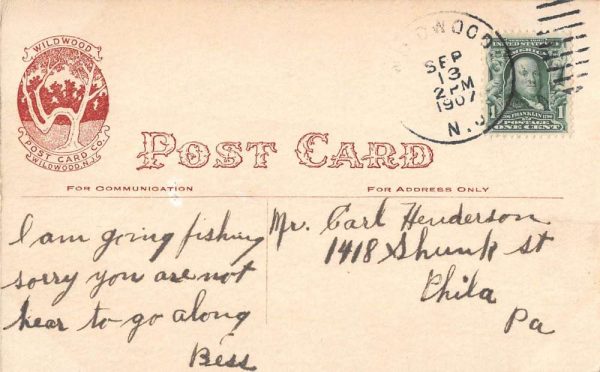 WILDWOOD
POST CARD CO.
WILDWOOD, N.J.
WILDWOOD
SEP
13
2 PM
1907
N.J.
UNITED STATES OF AMERICA
1 1
POSTAGE
ONE CENT
POST CARD
FOR COMMUNICATION
FOR ADDRESS ONLY
I am going fishing
sorry you are not
hear to go along
Bess
Mr. Carl Henderson
1418 Shunk st
Phila
Pa